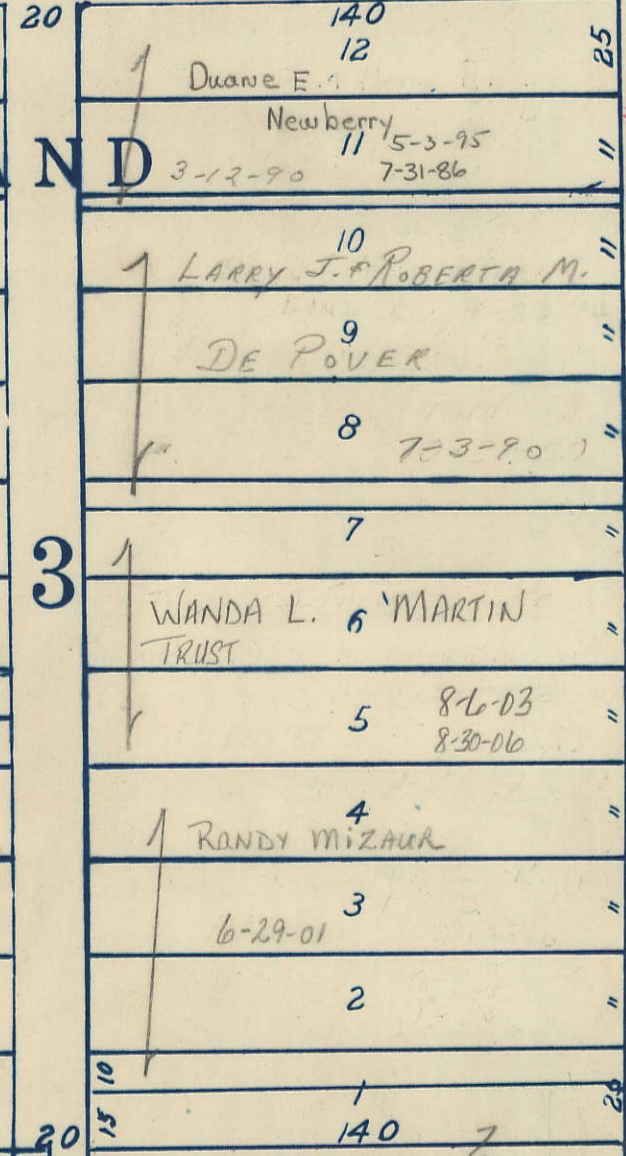 20 140
12 25
Duane E.
Newberry
N D 11 5-3-95 "
3-12-90 7-31-86
10 "
LARRY J. & ROBERTA M.
9 "
DE POVER
8 "
7-3-90
7 "
3
WANDA L. 6 MARTIN "
TRUST
5 8-6-03 "
8-30-06
4 "
RANDY MIZAUR
3 "
6-29-01
2 "
10
1
15
20 140